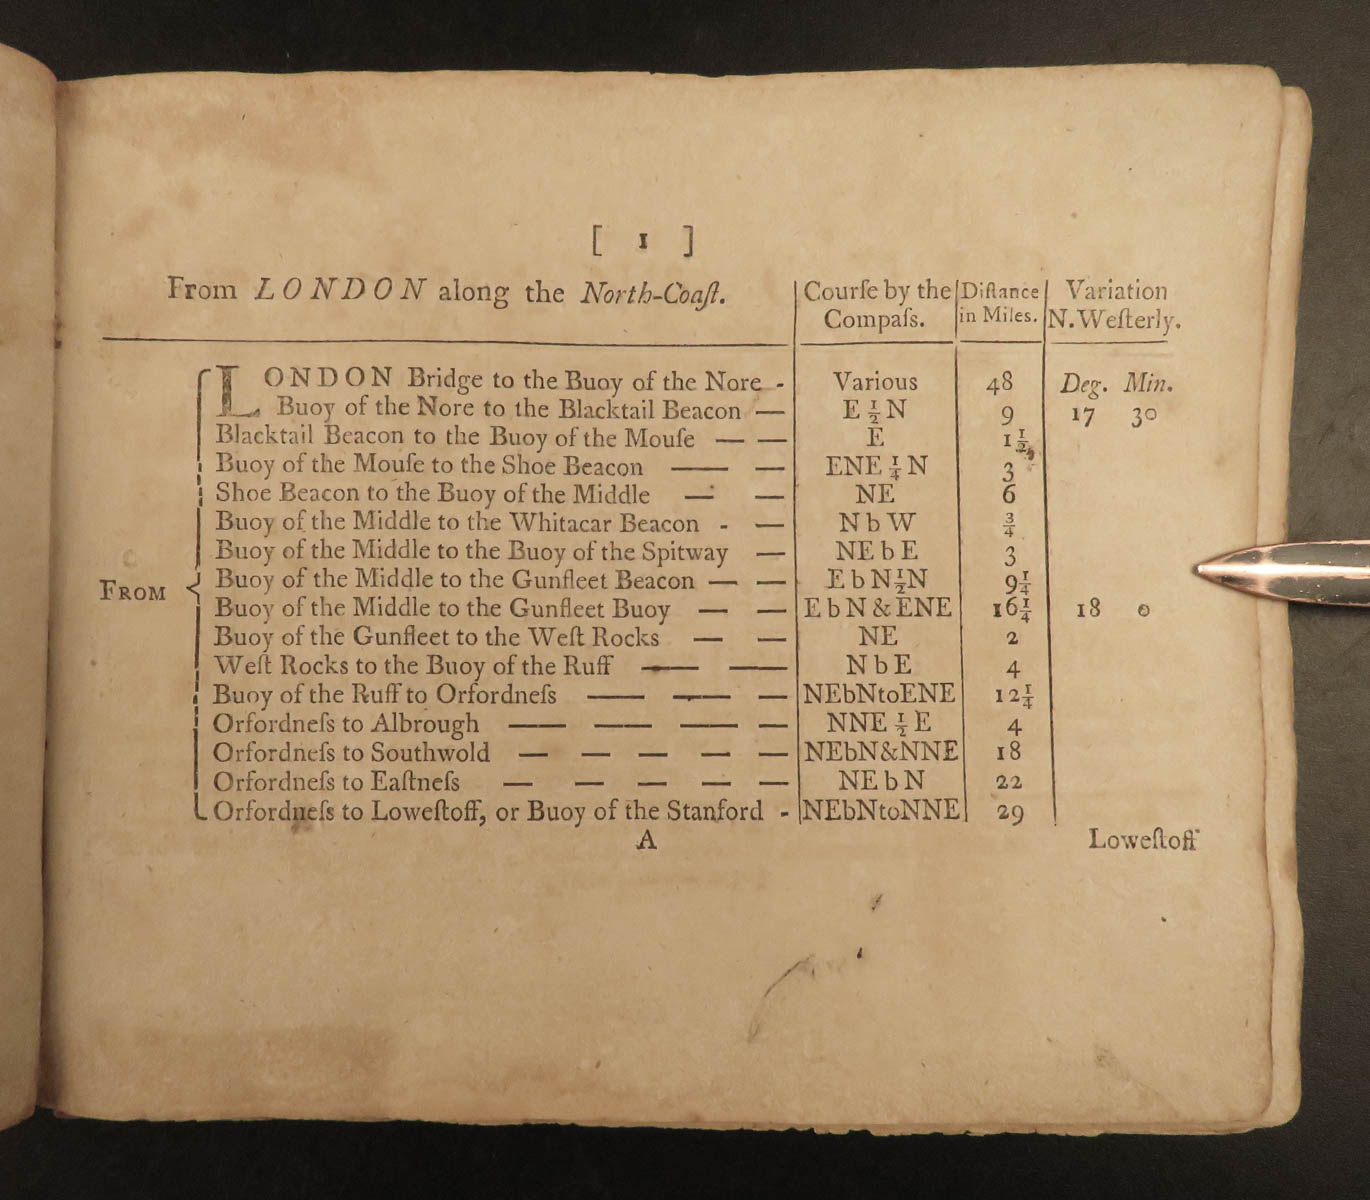 [ 1 ]
From LONDON along the North-Coaſt. Courſe by the Compaſs. Diſtance in Miles. Variation N. Weſterly.
LONDON Bridge to the Buoy of the Nore - Various 48 Deg. Min.
Buoy of the Nore to the Blacktail Beacon — E ½ N 9 17 30
Blacktail Beacon to the Buoy of the Mouſe — — E 1½
Buoy of the Mouſe to the Shoe Beacon — — ENE ¼ N 3
Shoe Beacon to the Buoy of the Middle — — NE 6
Buoy of the Middle to the Whitacar Beacon - — N b W ¾
Buoy of the Middle to the Buoy of the Spitway — NE b E 3
FROM Buoy of the Middle to the Gunfleet Beacon — — E b N ½ N 9¼
Buoy of the Middle to the Gunfleet Buoy — — E b N & ENE 16¼ 18 0
Buoy of the Gunfleet to the Weſt Rocks — — NE 2
Weſt Rocks to the Buoy of the Ruff — — N b E 4
Buoy of the Ruff to Orfordneſs — — — NEbNtoENE 12¼
Orfordneſs to Albrough — — — — NNE ½ E 4
Orfordneſs to Southwold — — — — — NEbN&NNE 18
Orfordneſs to Eaſtneſs — — — — — NE b N 22
Orfordneſs to Loweſtoff, or Buoy of the Stanford - NEbNtoNNE 29
A Loweſtoff